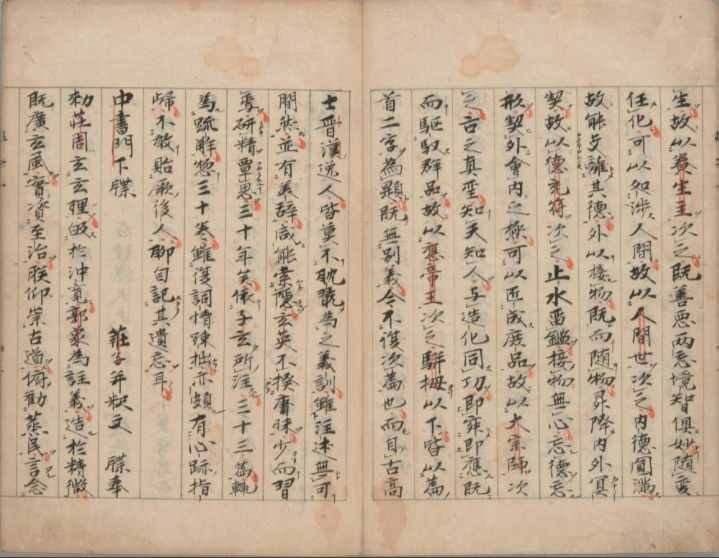 生故以養生主次之既善惡兩忘境智俱妙随變
任化可以処涉人間故以人間世次之内德圓滿
故能支離其德外以接物既而随物昇降内外冥
契故以德充符次之止水留鑑接物無心忘德忘
形契外會内之極可以匠成庶品故以大宗師次
之古之真聖知天知人与造化同功即寂即應既
而驅馭群品故以應帝王次之駢拇以下皆以篇
首二字為題既無別義今不復次篇也而自古高
士晋漢逸人皆莫不耽翫為之義訓雖注述無可
間然並有美辞咸能索隱玄英不揆庸昧少而習
焉研精覃思三十年矣依子玄所注三十三篇輒
為疏解惣三十卷雖復詞情疎拙亦頗有心跡指
歸不敢貽厥後人聊自記其遺忘耳
中書門下牒 莊子年状文 牒奉
勅莊周玄玄理於沖寞郭象為註義造於精微
既廣玄風實資至治朕仰崇古道俯勸蒸民言念